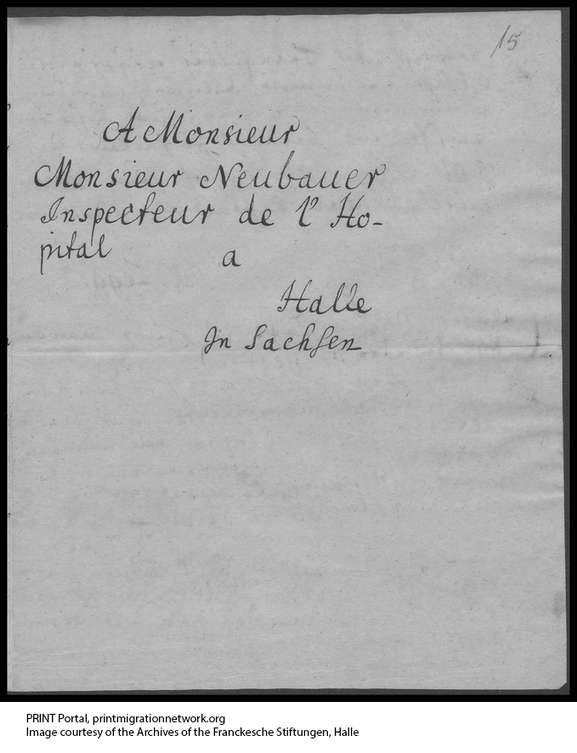 15
A Monsieur
Monsieur Neubauer
Inspecteur de l' Ho-
pital a
Halle
In Sachsen
PRINT Portal, printmigrationnetwork.org
Image courtesy of the Archives of the Franckesche Stiftungen, Halle